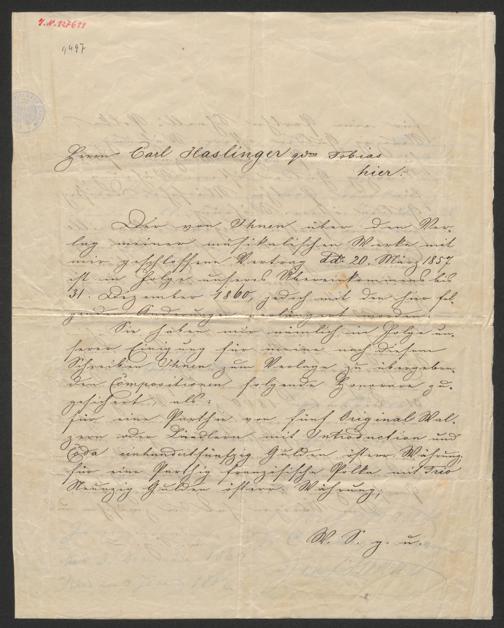 I.N. 127611
9497
Herrn Carl Haslinger qdm Tobias
hier.
Der von Ihnen über den Ver-
lag meiner musikalischen Werke mit
mir geschlossene Vertrag ddo 20. März 1857
ist in Folge unseres Übereinkommens bis
31. Dezember 1860, jedoch mit den hier fol-
genden Änderungen verlängert worden.
Sie haben mir nämlich in Folge un-
serer Einigung für meine nach diesem
Schreiben Ihnen zum Verlage zu übergeben-
den Compositionen folgende Honorare zu-
gesichert, als:
für eine Parthie von fünf Original Wal-
zern oder Ländlern mit Introduction und
Coda Gulden österr. Währung
für eine Parthie französische Polka mit Trio
Neunzig Gulden österr. Währung;
W. S. g. u.